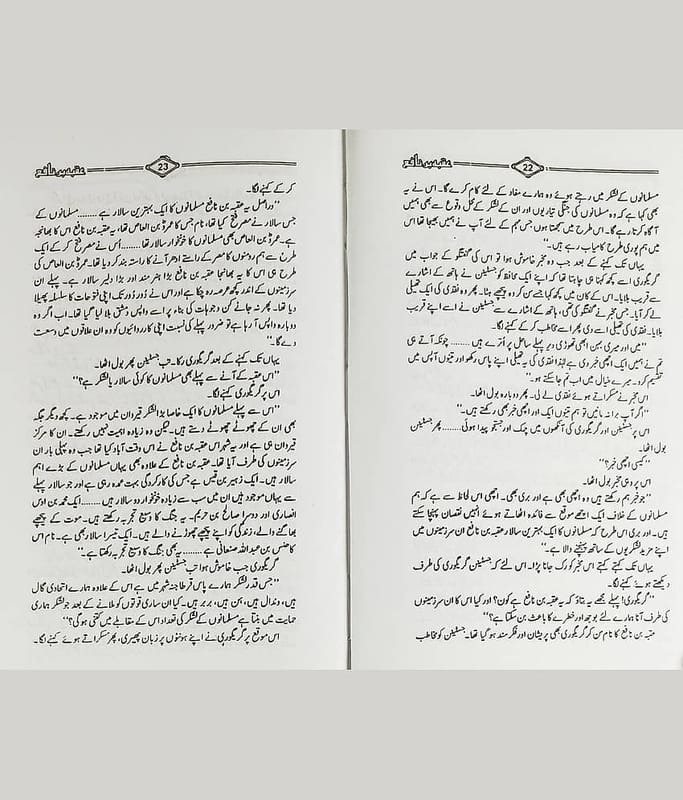 عقبہ بن نافع
22
مسلمانوں کے لشکر میں رہتے ہوئے وہ ہمارے مفاد کے لئے کام کرے گا۔ اس نے یہ
بھی کہا ہے کہ وہ مسلمانوں کی جنگی تیاریوں اور ان کے لشکر کے محل وقوع سے بھی ہمیں
آگاہ کرتا رہے گا۔ اس طرح میں سمجھتا ہوں جس مہم کے لئے آپ نے ہمیں بھیجا تھا اس
میں ہم پوری طرح کامیاب رہے ہیں۔"
یہاں تک کہنے کے بعد جب وہ مخبر خاموش ہوا تو اس کی گفتگو کے جواب میں
گریگوری اسے کچھ کہنا ہی چاہتا تھا کہ اپنے ایک محافظ کو جسٹین نے ہاتھ کے اشارے
سے قریب بلایا۔ اس کے کان میں کچھ کہا جسے سن کر وہ پیچھے ہٹا۔ پھر وہ نقدی کی ایک تھیلی
لے کر آیا۔ جس مخبر نے گفتگو کی تھی، ہاتھ کے اشارے سے جسٹین نے اسے اپنے قریب
بلایا۔ نقدی کی تھیلی اسے دی پھر اسے مخاطب کر کے کہنے لگا۔
"میں اور میری بہن ابھی تھوڑی دیر پہلے ساحل پر اترے ہیں ........ چونکہ آتے ہی
تم نے ہمیں ایک اچھی خبر دی ہے لہٰذا نقدی کی یہ تھیلی اپنے پاس رکھو اور تینوں آپس میں
تقسیم کر دو۔ میرے خیال میں اب تم جا سکتے ہو۔"
اس مخبر نے مسکراتے ہوئے نقدی لے لی۔ پھر دوبارہ بول اٹھا۔
"اگر آپ برا نہ مانیں تو ہم تینوں ایک اور اچھی خبر بھی رکھتے ہیں۔"
اس پر جسٹین اور گریگوری کی آنکھوں میں چمک اور جستجو پیدا ہوئی ........ پھر جسٹین
بول اٹھا۔
"کیسی اچھی خبر؟"
اس پر وہی مخبر بول اٹھا۔
"جو خبر ہم رکھتے ہیں وہ اچھی بھی ہے اور بری بھی۔ اچھی اس لحاظ سے ہے کہ ہم
مسلمانوں کے خلاف ایک اچھے موقع سے فائدہ اٹھاتے ہوئے انہیں نقصان پہنچا سکتے
ہیں۔ اور بری اس طرح کہ مسلمانوں کا ایک بہترین سالار عقبہ بن نافع ان سرزمینوں میں
اپنے مزید لشکریوں کے ساتھ پہنچنے والا ہے۔"
یہاں تک کہتے کہتے اس مخبر کو رک جانا پڑا۔ اس لئے کہ جسٹین گریگوری کی طرف
دیکھتے ہوئے کہنے لگا۔
"گریگوری! پہلے مجھے یہ بتاؤ کہ یہ عقبہ بن نافع ہے کون؟ اور کیا اس کا ان سرزمینوں
کی طرف آنا ہمارے لئے بوجھ اور خطرے کا باعث بن سکتا ہے؟"
عقبہ بن نافع کا نام سن کر گریگوری بھی پریشان اور فکرمند ہو گیا تھا۔ جسٹین کو مخاطب
عقبہ بن نافع
23
کر کے کہنے لگا۔
"دراصل یہ عقبہ بن نافع مسلمانوں کا ایک بہترین سالار ہے ........ مسلمانوں کے
جس سالار نے مصر فتح کیا تھا، نام جس کا عمرو بن العاص تھا، یہ عقبہ بن نافع اس کا بھانجہ
ہے۔ عمرو بن العاص بھی مسلمانوں کا خونخوار سالار تھا ........ اس نے مصر فتح کر کے ایک
طرح سے ہم رومنوں کا مصر کے راستے ادھر آنے کا راستہ بند کر دیا تھا۔ عمرو بن العاص کی
طرح ہی اس کا یہ بھانجا عقبہ بن نافع بڑا ہنر مند اور بڑا دلیر سالار ہے۔ پہلے ان
سرزمینوں کے اندر کچھ عرصہ رہ چکا ہے اور اس نے دور دور تک اپنی فتوحات کا سلسلہ پھیلا
دیا تھا۔ پھر نہ جانے کن وجوہات کی بناء پر اسے واپس دمشق بلا لیا گیا تھا۔ اب اگر وہ
دوبارہ واپس آ رہا ہے تو ضرور پہلے کی نسبت اپنی کارروائیوں کو وہ ان علاقوں میں وسعت
دے گا۔"
یہاں تک کہنے کے بعد گریگوری رکا۔ تب جسٹین پھر بول اٹھا۔
"اس عقبہ کے آنے سے پہلے بھی مسلمانوں کا کوئی سالار یا لشکر ہے؟"
اس پر گریگوری کہنے لگا۔
"اس سے پہلے مسلمانوں کا ایک خاصا بڑا لشکر قیروان میں موجود ہے۔ کچھ دیگر جگہ
بھی ان کے چھوٹے چھوٹے دستے ہیں۔ لیکن وہ زیادہ اہمیت نہیں رکھتے۔ ان کا مرکز
قیروان ہی ہے اور یہ شہر اس عقبہ بن نافع نے اس وقت آباد کیا تھا جب وہ پہلی بار ان
سرزمینوں کی طرف آیا تھا۔ عقبہ بن نافع کے علاوہ بھی یہاں مسلمانوں کے بڑے اہم
سالار ہیں۔ ایک زہیر بن قیس ہے جس کی کارکردگی بہت عمدہ رہی ہے اور جو سالار پہلے
سے یہاں موجود ہیں ان میں سب سے زیادہ خونخوار دو سالار ہیں ........ ایک محمد بن اوس
انصاری اور دوسرا صالح بن حریم۔ یہ جنگ کا وسیع تجربہ رکھتے ہیں۔ موت کے پیچھے
بھاگنے والے، زندگی کو اپنے پیچھے چھوڑنے والے ہیں۔ ایک تیسرا سالار بھی ہے۔ نام اس
کا حنش بن عبداللہ صنعانی ہے ........ یہ بھی جنگ کا وسیع تجربہ رکھتا ہے۔"
گریگوری جب خاموش ہوا تب جسٹین پھر بول اٹھا۔
"جس قدر لشکر ہمارے پاس قرطاجنہ شہر میں ہے اس کے علاوہ ہمارے اتحادی گال
ہیں، وندال ہیں، ہن ہیں، بربر ہیں۔ کیا ان ساری قوتوں کو ملانے کے بعد جو لشکر ہماری
حمایت میں بنتا ہے مسلمانوں کے لشکر کی تعداد اس کے مقابلے میں کتنی ہو گی؟"
اس موقع پر گریگوری نے اپنے ہونٹوں پر زبان پھیری، پھر مسکراتے ہوئے کہنے لگا۔